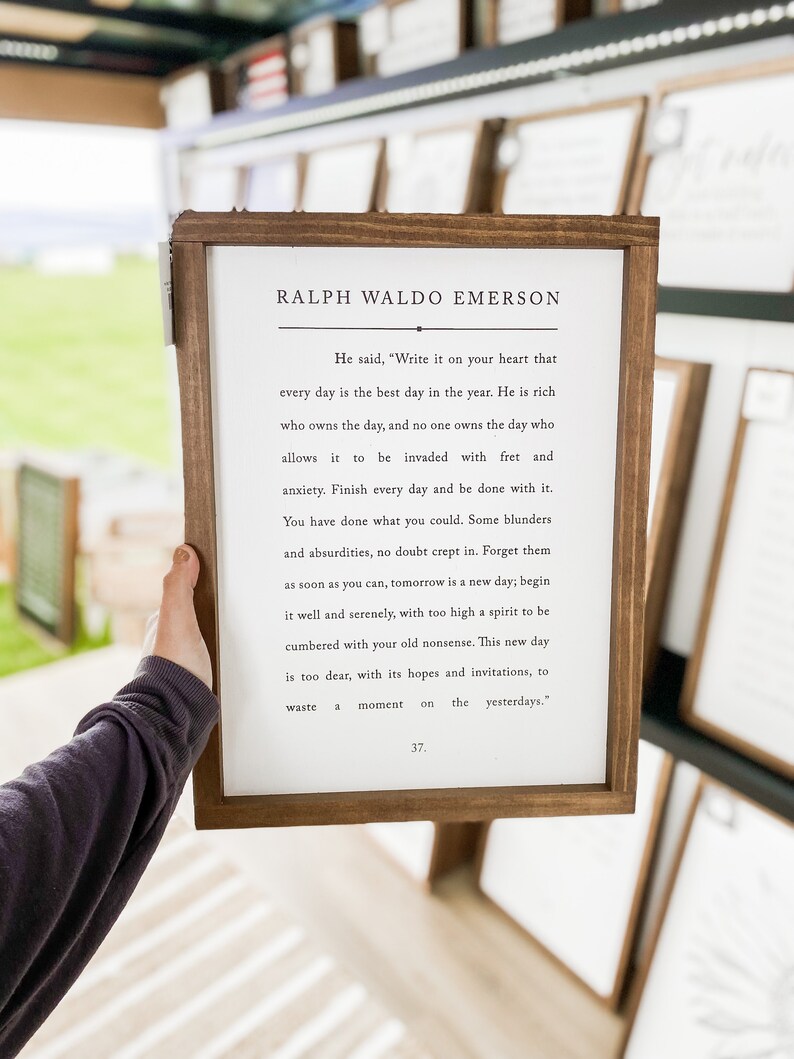 RALPH WALDO EMERSON
He said, “Write it on your heart that
every day is the best day in the year. He is rich
who owns the day, and no one owns the day who
allows it to be invaded with fret and
anxiety. Finish every day and be done with it.
You have done what you could. Some blunders
and absurdities, no doubt crept in. Forget them
as soon as you can, tomorrow is a new day; begin
it well and serenely, with too high a spirit to be
cumbered with your old nonsense. This new day
is too dear, with its hopes and invitations, to
waste a moment on the yesterdays.”
37.